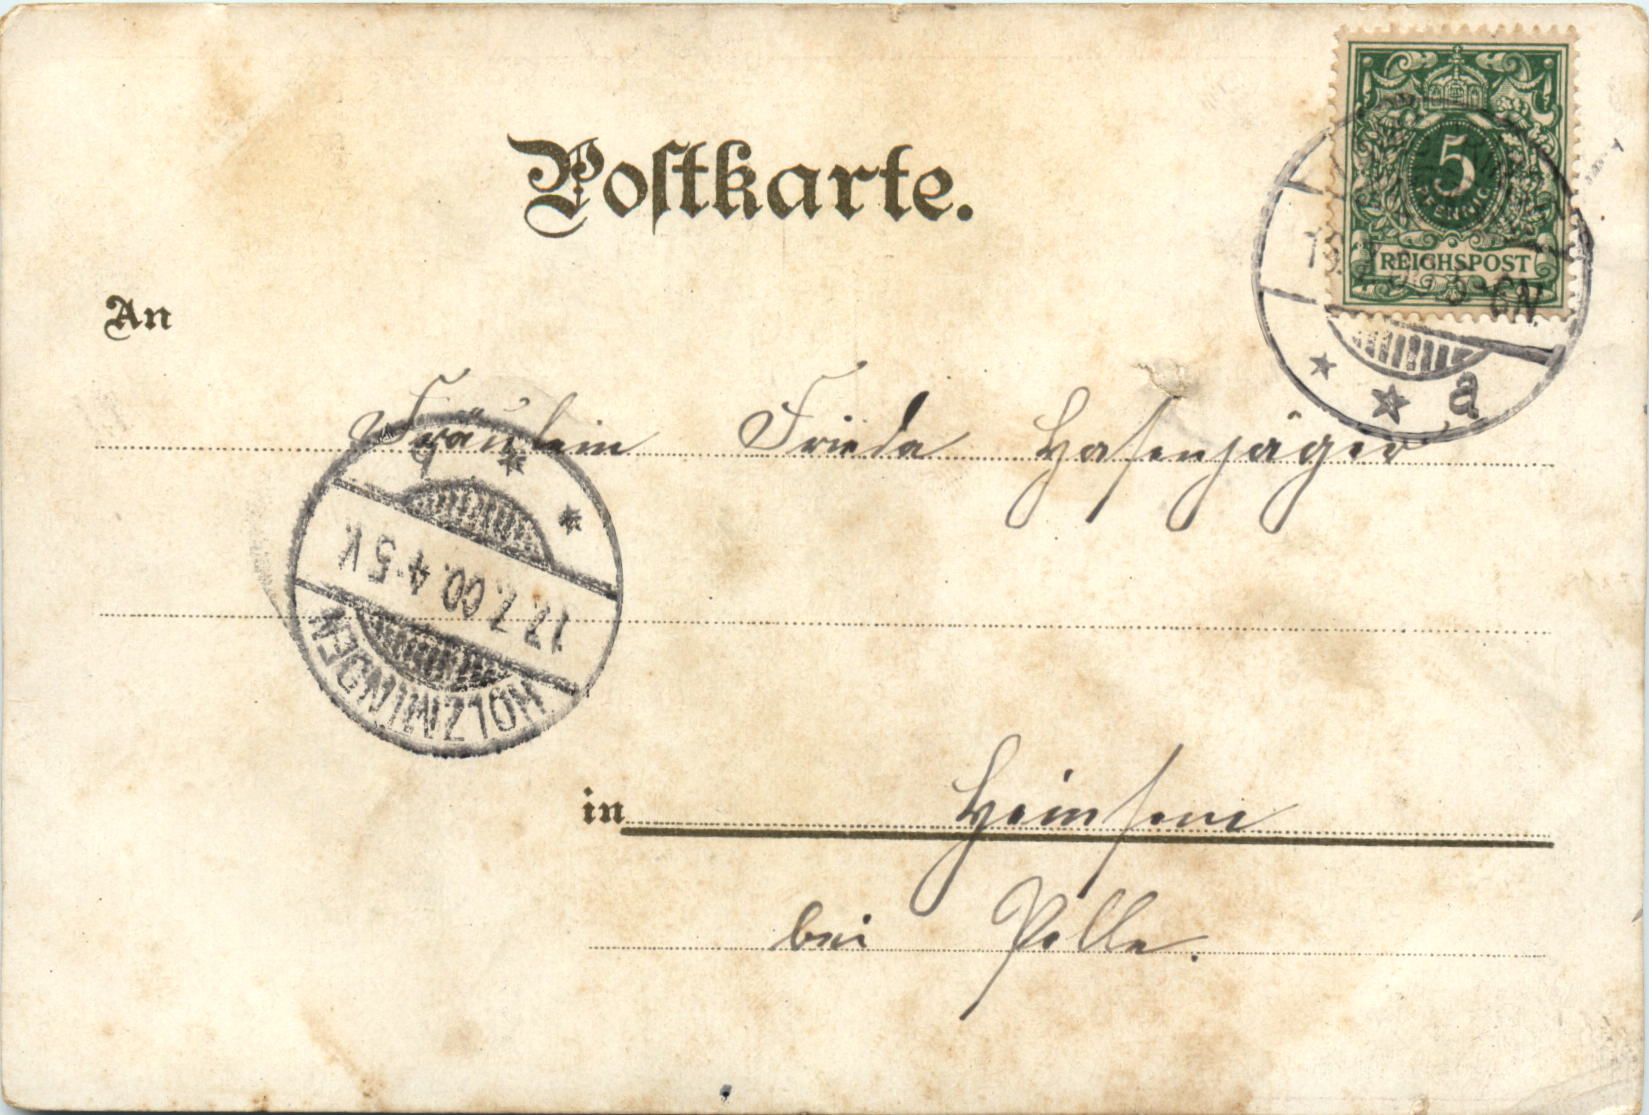 Postkarte.
5
PFENNIG
REICHSPOST
a
An
Fräulein Frieda Hasenjäger
HOLZMINDEN
17.7.00.4-5V.
in Heinsen
bei Polle.